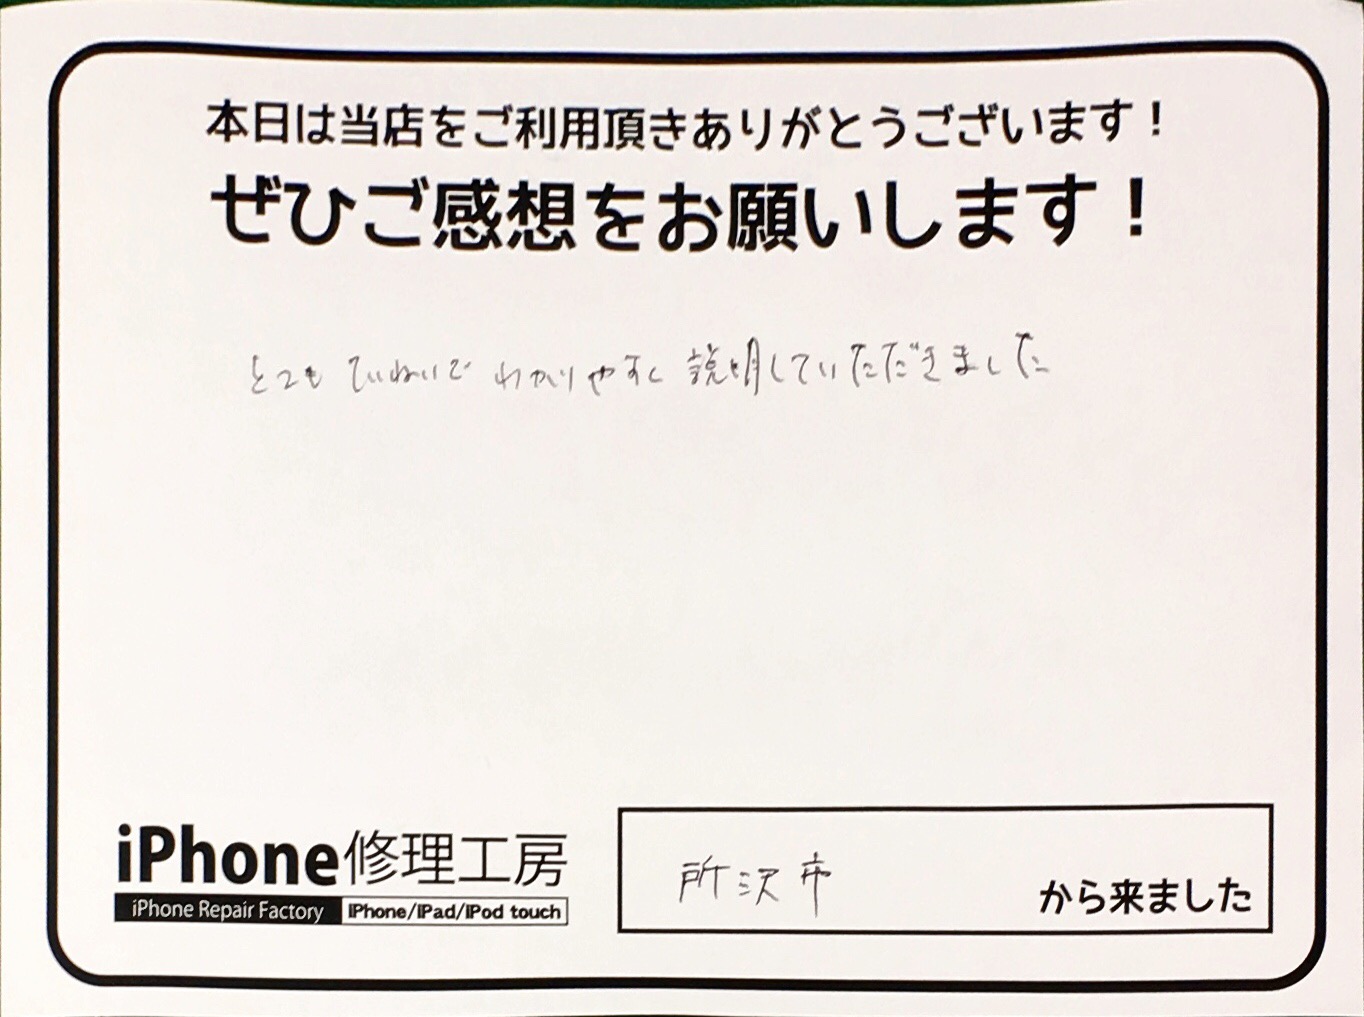 本日は当店をご利用頂きありがとうございます！
ぜひご感想をお願いします！
とても ていねいで わかりやすく 説明していただきました
iPhone修理工房
iPhone Repair Factory iPhone/iPad/iPod touch
所沢市 から来ました